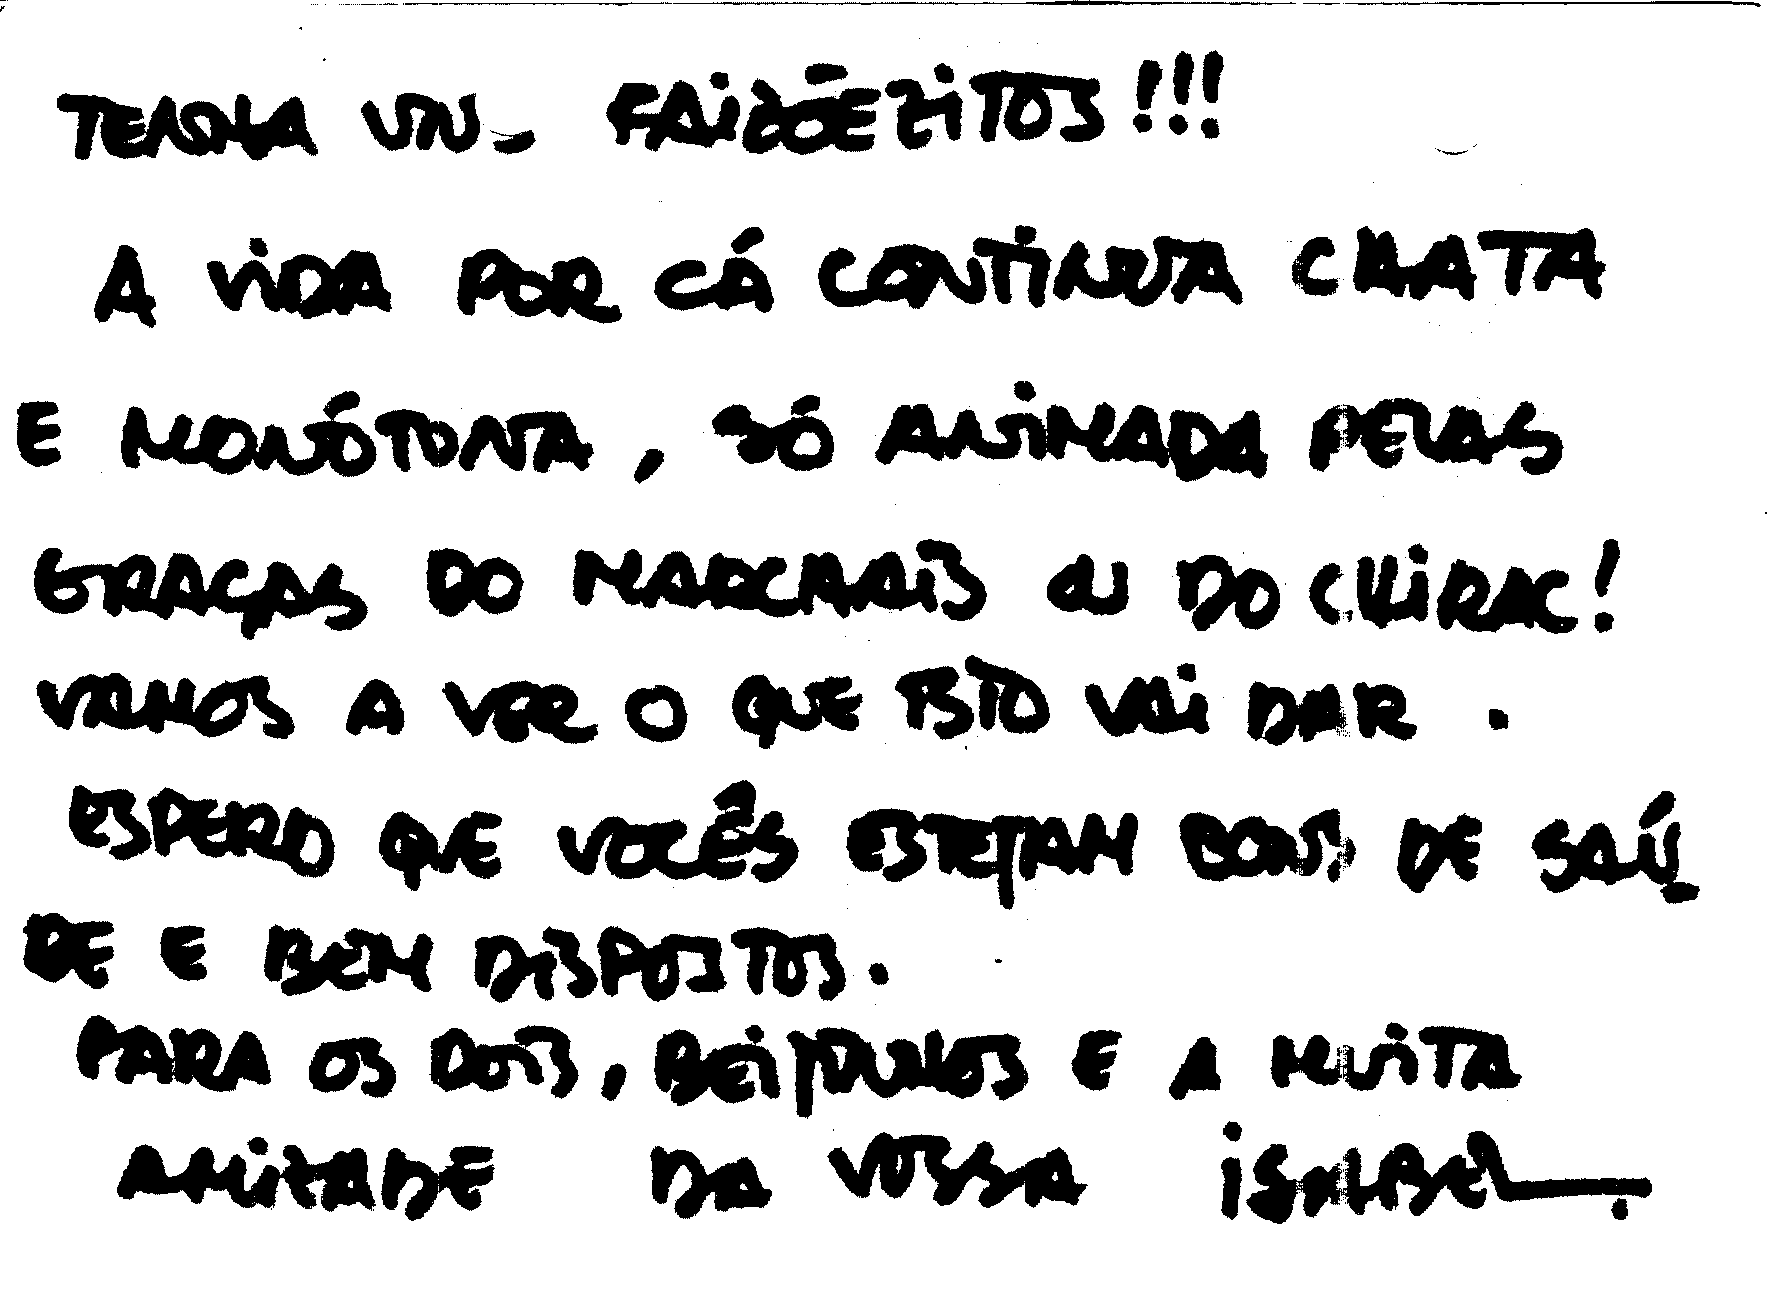 TENHA UN- FAIZÕEZITOS!!!
A VIDA POR CÁ CONTINUA CHATA
E MONÓTONA, SÓ ANIMADA PELAS
GRAÇAS DO MARCHAIS OU DO CHIRAC!
VAMOS A VER O QUE ISTO VAI DAR.
ESPERO QUE VOCÊS ESTEJAM BONS DE SAÚ-
DE E BEM DISPOSTOS.
PARA OS DOIS, BEIJUNHOS E A MUITA
AMIZADE DA VOSSA ISALBEL.